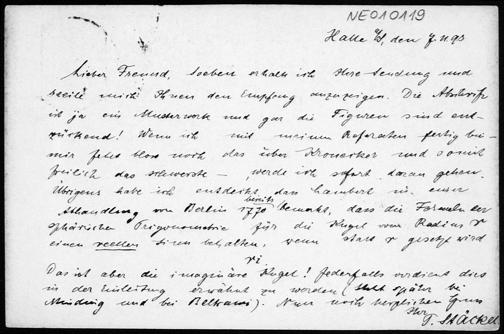 NE010119
Halle a/S, den 7. 11. 93
Lieber Freund, soeben erhalte ich Ihre Sendung und
beeile mich Ihnen den Empfang anzuzeigen. Die Abschrift
ist ja ein Musterwerk und gar die Figuren sind ent-
zückend! Wenn ich mit meinen Referaten fertig bin
mir fehlt bloss noch das über Kronecker und somit
freilich das schwerste – werde ich sofort daran gehen.
Übrigens habe ich entdeckt, dass Lambert in einer
Abhandlung von Berlin 1770 bereits bemerkt, dass die Formeln der
sphärischen Trigonometrie für die Kugel vom Radius r
einen reellen Sinn behalten, wenn statt r gesetzt wird
r i
Das ist aber die imaginäre Kugel! Jedenfalls verdient dies
in der Einleitung erwähnt zu werden (statt später bei
Minding und bei Beltrami). Nun noch herzlichen Gruss
Ihr
P. Stäckel